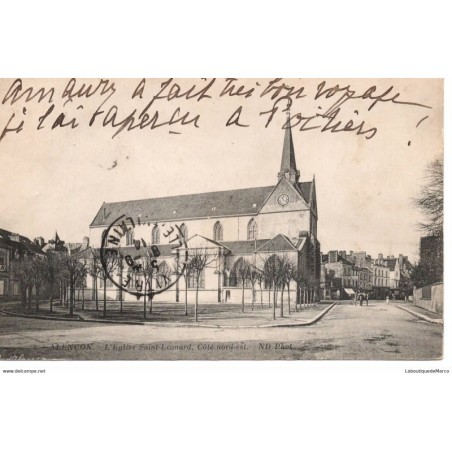 Amaury à fait très bon voyage
je l'ai aperçu à Poitiers
ALENÇON. - L'Eglise Saint-Léonard, Côté nord-est. ND Phot.
www.delcampe.net
LaboutiquedeMarco